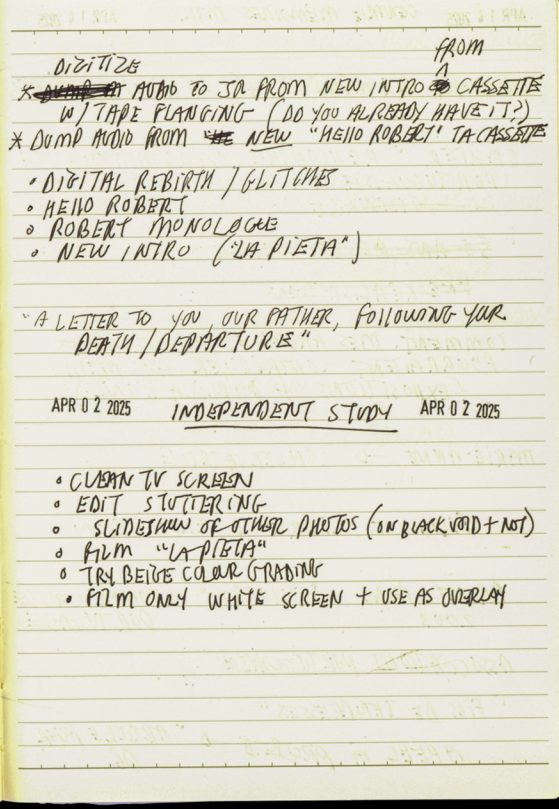 DIGITIZE
FROM
* AUDIO TO JR FROM NEW INTRO CASSETTE
W/ TAPE FLANGING (DO YOU ALREADY HAVE IT?)
* DUMP AUDIO FROM NEW "HELLO ROBERT" TA CASSETTE
• DIGITAL REBIRTH / GLITCHES
• HELLO ROBERT
• ROBERT MONOLOGUE
• NEW INTRO ("LA PIETA")
"A LETTER TO YOU, OUR FATHER, FOLLOWING YOUR
DEATH / DEPARTURE"
APR 02 2025 INDEPENDENT STUDY APR 02 2025
• CLEAN TV SCREEN
• EDIT STUTTERING
• SLIDESHOW OF OTHER PHOTOS (ON BLACK VOID + NOT)
• FILM "LA PIETA"
• TRY BEIGE COLOUR GRADING
• FILM ONLY WHITE SCREEN + USE AS OVERLAY